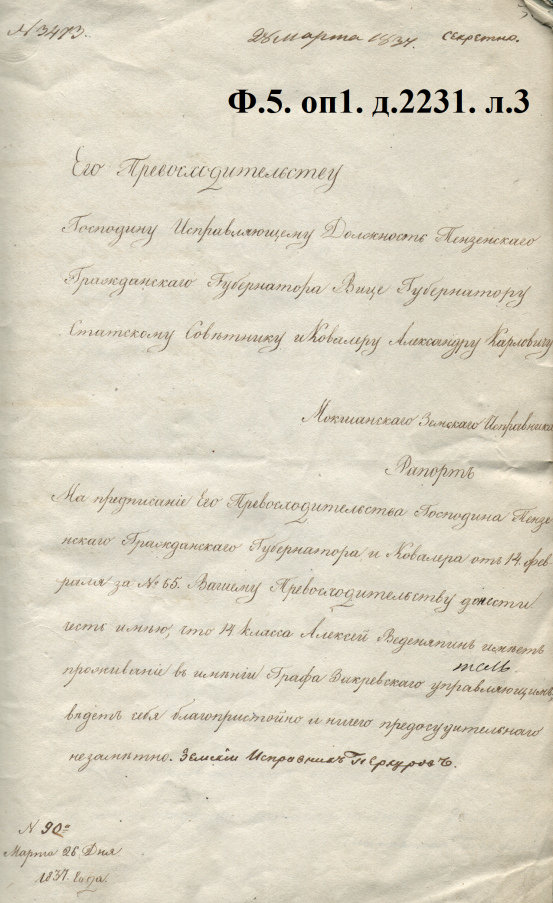 № 3473.
28 Марта 1837. Секретно.
Ф.5. оп1. д.2231. л.3
Его Превосходительству
Господину Исправляющему Должность Пензенскаго
Гражданскаго Губернатора Вице Губернатору
Статскому Совѣтнику и Кавалеру Александру Карловичу
Мокшанскаго Земскаго Исправника
Рапортъ
На предписаніе Его Превосходительства Господина Пензе
нскаго Гражданскаго Губернатора и Кавалера отъ 14. фев
раля за № 65. Вашему Превосходительству донести
честь имѣю, что 14 класса Алексѣй Веденяпинъ имѣетъ
проживаніе въ имѣніи Графа Закревскаго управляющимъ,
тѣмъ
ведетъ себя благопристойно и ничего предосудительнаго
незамѣтно. Земскій Исправникъ
№ 90й
Марта 26 Дня
1837. Года.